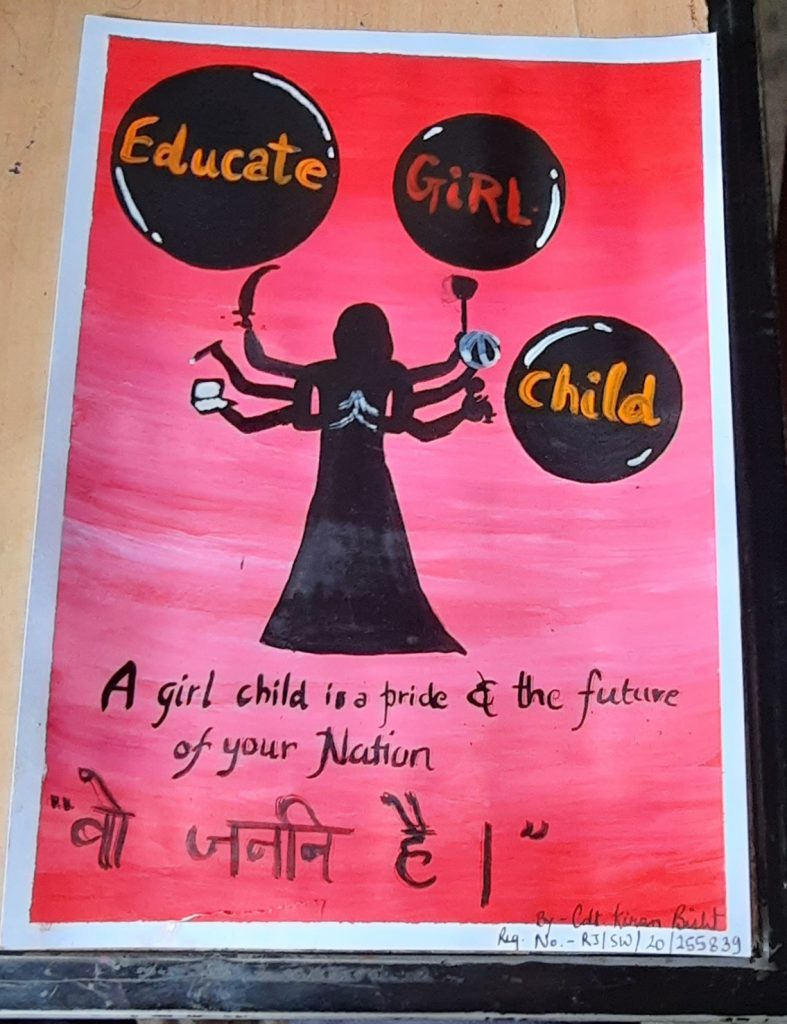 Educate
GiRL
child
A girl child is a pride & the future
of your Nation
"वो जननि है।"
By - Cdt. Kiran Bisht
Reg. No. - RJ/SW/20/255839